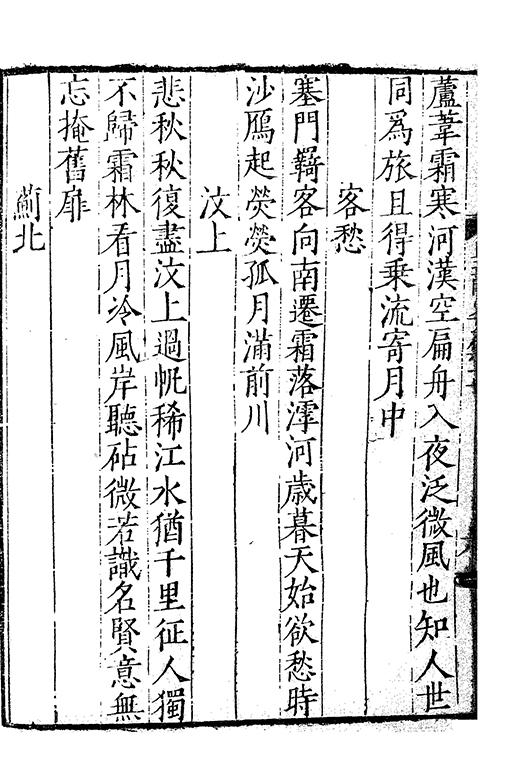 蘆葦霜寒河漢空扁舟入夜泛微風也知人世
同爲旅且得乗流寄月中
客愁
塞門羇客向南遷霜落滹河歲暮天始欲愁時
沙鴈起熒熒孤月滿前川
汶上
悲秋秋復盡汶上過帆稀江水猶千里征人獨
不歸霜林看月冷風岸聽砧微若識名賢意無
忘掩舊扉
薊北